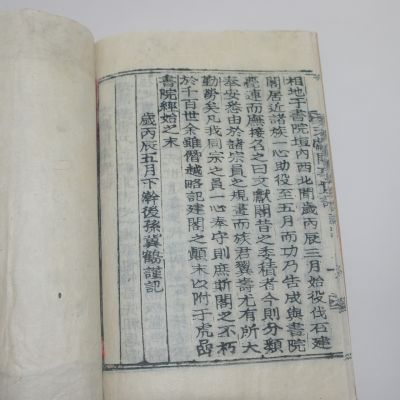 相地于書院垣內西北間歲丙辰三月始役伐石建
閣居近諸族一心助役至五月而功乃告成與書院
齊連而廡接名之曰文獻閣昔之委積者今則分類
奉安悉由於諸宗員之規畫而族君翼壽尤有所大
勤勞矣凡我同宗之員一心奉守則庶斯閣之不朽
於千百世余雖僭越略記建閣之顚末以附于虎巖
書院經始之末
歲丙辰五月下澣後孫冀鶴謹記